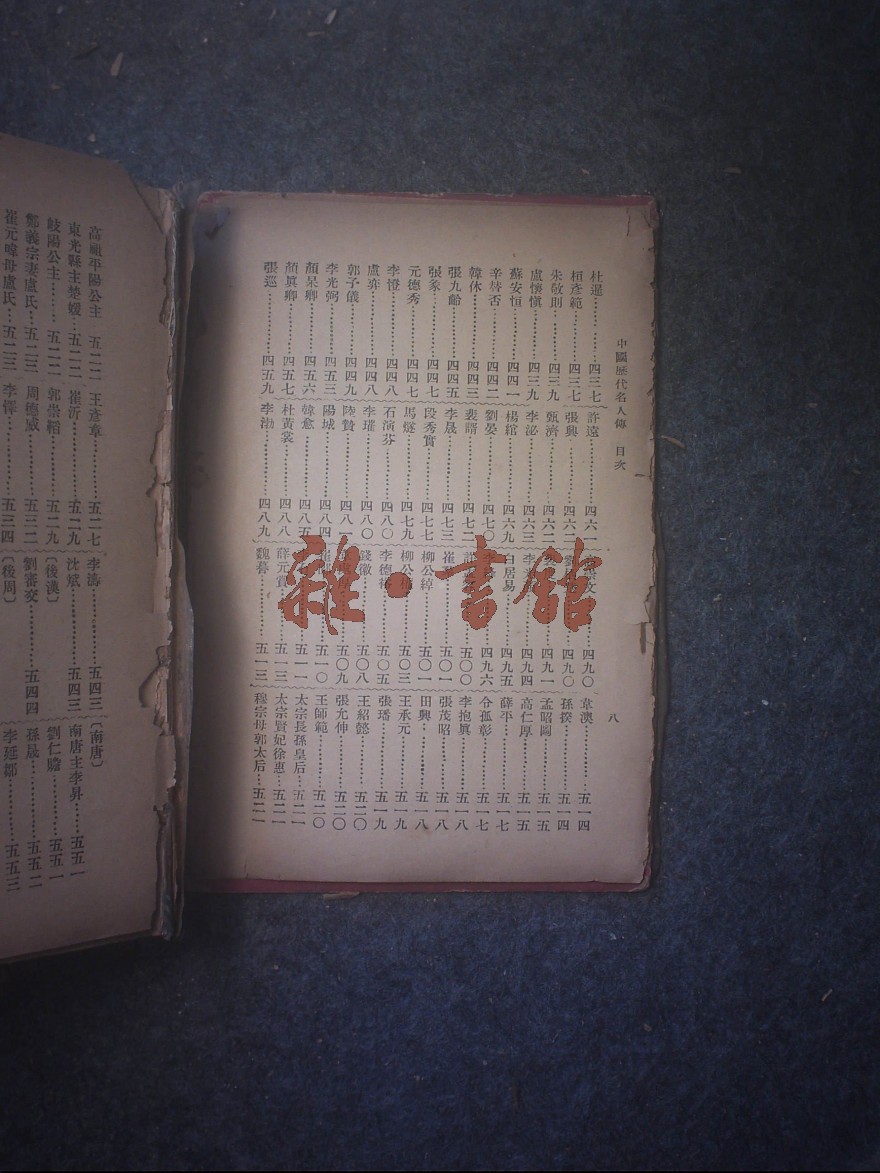 中國歷代名人傳 目次
八
杜暹……四三七
桓彥範……四三七
朱敬則……四三九
盧懷愼……四三九
蘇安恒……四四一
辛替否……四四二
韓休……四四三
張九齡……四四五
張彖……四四七
元德秀……四四七
李憕……四四八
盧弈……四四八
郭子儀……四四九
李光弼……四五三
顏杲卿……四五六
顏眞卿……四五七
張巡……四五九
許遠……四六一
張興……四六二
甄濟……四六二
李泌……四六三
楊綰……四六九
劉晏……四七〇
裴諝……四七二
李晟……四七三
段秀實……四七七
馬燧……四七九
石演芬……四八〇
李璀……四八〇
陸贄……四八一
陽城……四八四
韓愈……四八五
杜黃裳……四八八
李渤……四八九
四九〇
四九〇
四九一
四九四
白居易……四九五
四九六
五〇〇
五〇一
柳公綽……五〇一
柳公權……五〇三
李德裕……五〇五
錢徽……五〇八
五〇九
五一〇
五一一
薛元賞……五一三
魏謩……五一三
韋澳……五一四
孫揆……五一四
孟昭圖……五一五
高仁厚……五一五
薛平……五一七
令狐彰……五一七
李抱眞……五一八
張茂昭……五一八
田興……五一八
王承元……五一九
張璠……五一九
王紹懿……五二〇
張允伸……五二〇
王師範……五二〇
太宗長孫皇后……五二一
太宗賢妃徐惠……五二一
穆宗母郭太后……五二一
雜·書館
高祖平陽公主 五二二
東光縣主楚媛……五二二
岐陽公主……五二二
鄭義宗妻盧氏……五二三
崔元暐母盧氏……五二三
王彥章……五二七
崔沂……五二九
郭崇韜……五二九
周德威……五三二
李懌……五三四
李濤……五四三
沈斌……五四三
〔後漢〕
劉審交……五四四
〔後周〕
〔南唐〕
南唐主李昇……五五一
劉仁贍……五五一
孫晟……五五二
李延鄒……五五三